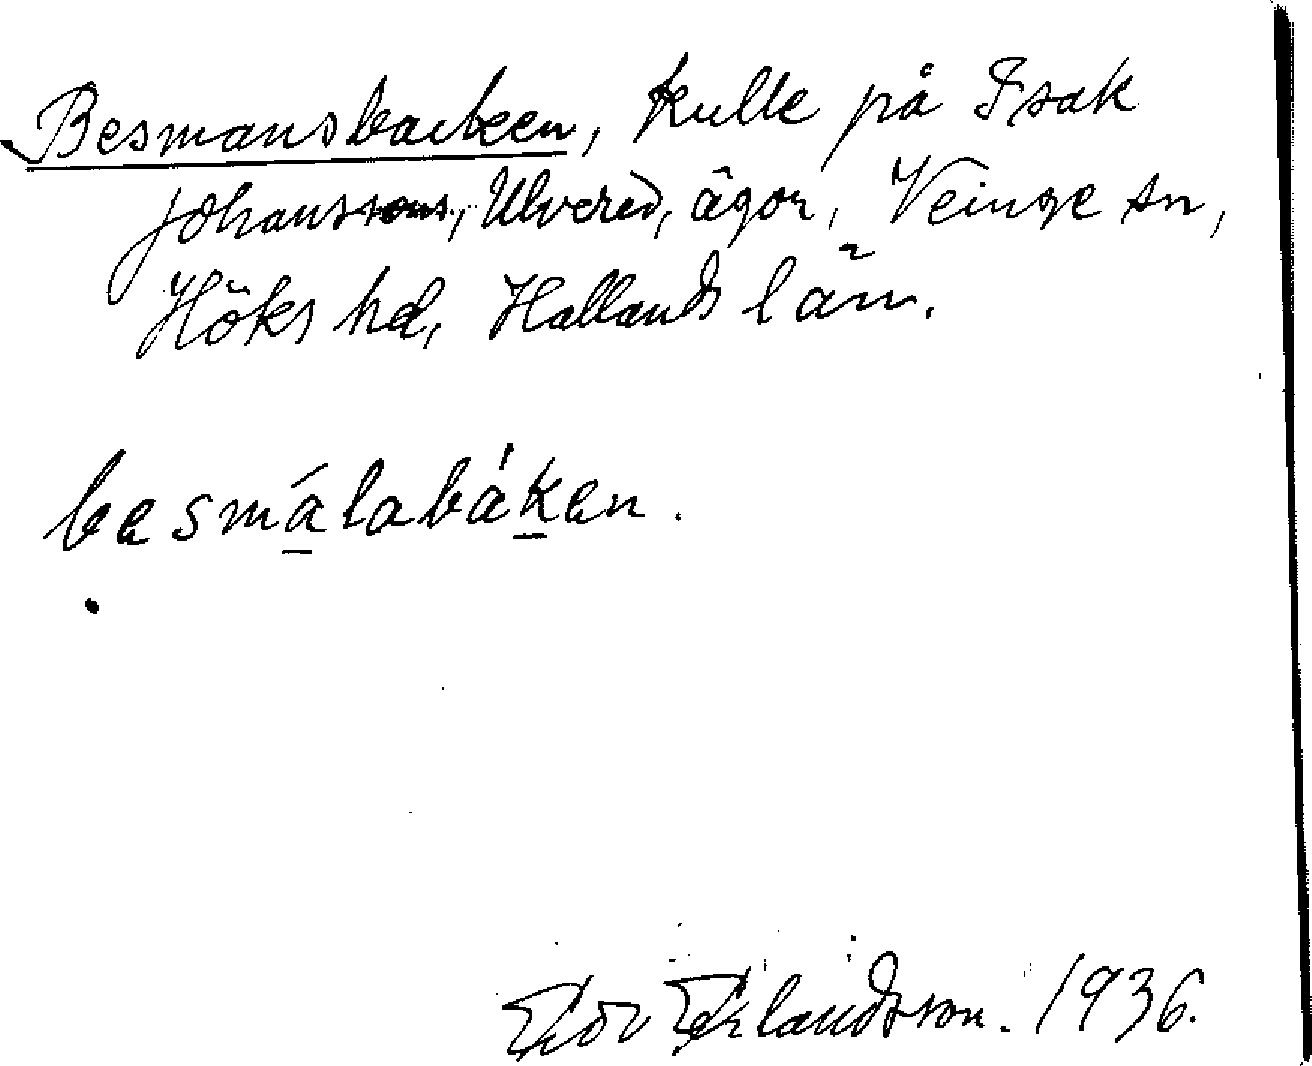 Besmansbacken, kulle på Isak
Johanssons, Ulvered, ägor, Veinge sn,
Höks hd, Hallands län.
besmálabáken.
Erlandsson. 1936.